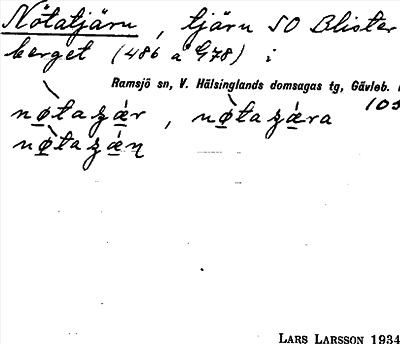 Nötatjärn, tjärn SO Blister
berget (486 a 978) i
Ramsjö sn, V. Hälsinglands domsagas tg, Gävleb.
nø̀taʒǽr, nø̀taʒǽra
nø̀taʒǽɳ
LARS LARSSON 1934